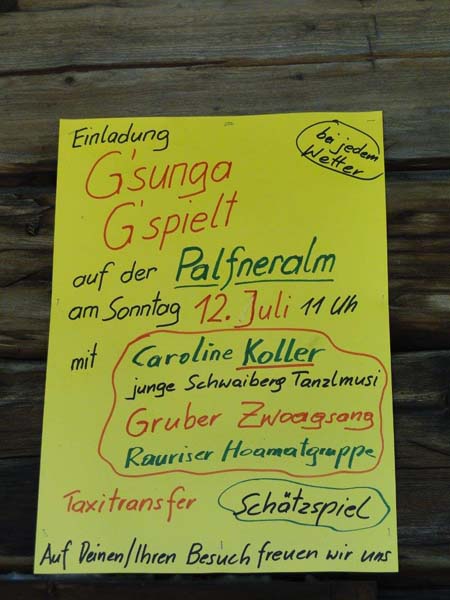 Einladung
bei jedem
Wetter
G'sunga
G'spielt
auf der Palfneralm
am Sonntag 12. Juli 11 Uh
mit Caroline Koller
junge Schwaiberg Tanzlmusi
Gruber Zwoagsang
Rauriser Hoamatgruppe
Taxitransfer Schätzspiel
Auf Deinen/Ihren Besuch freuen wir uns